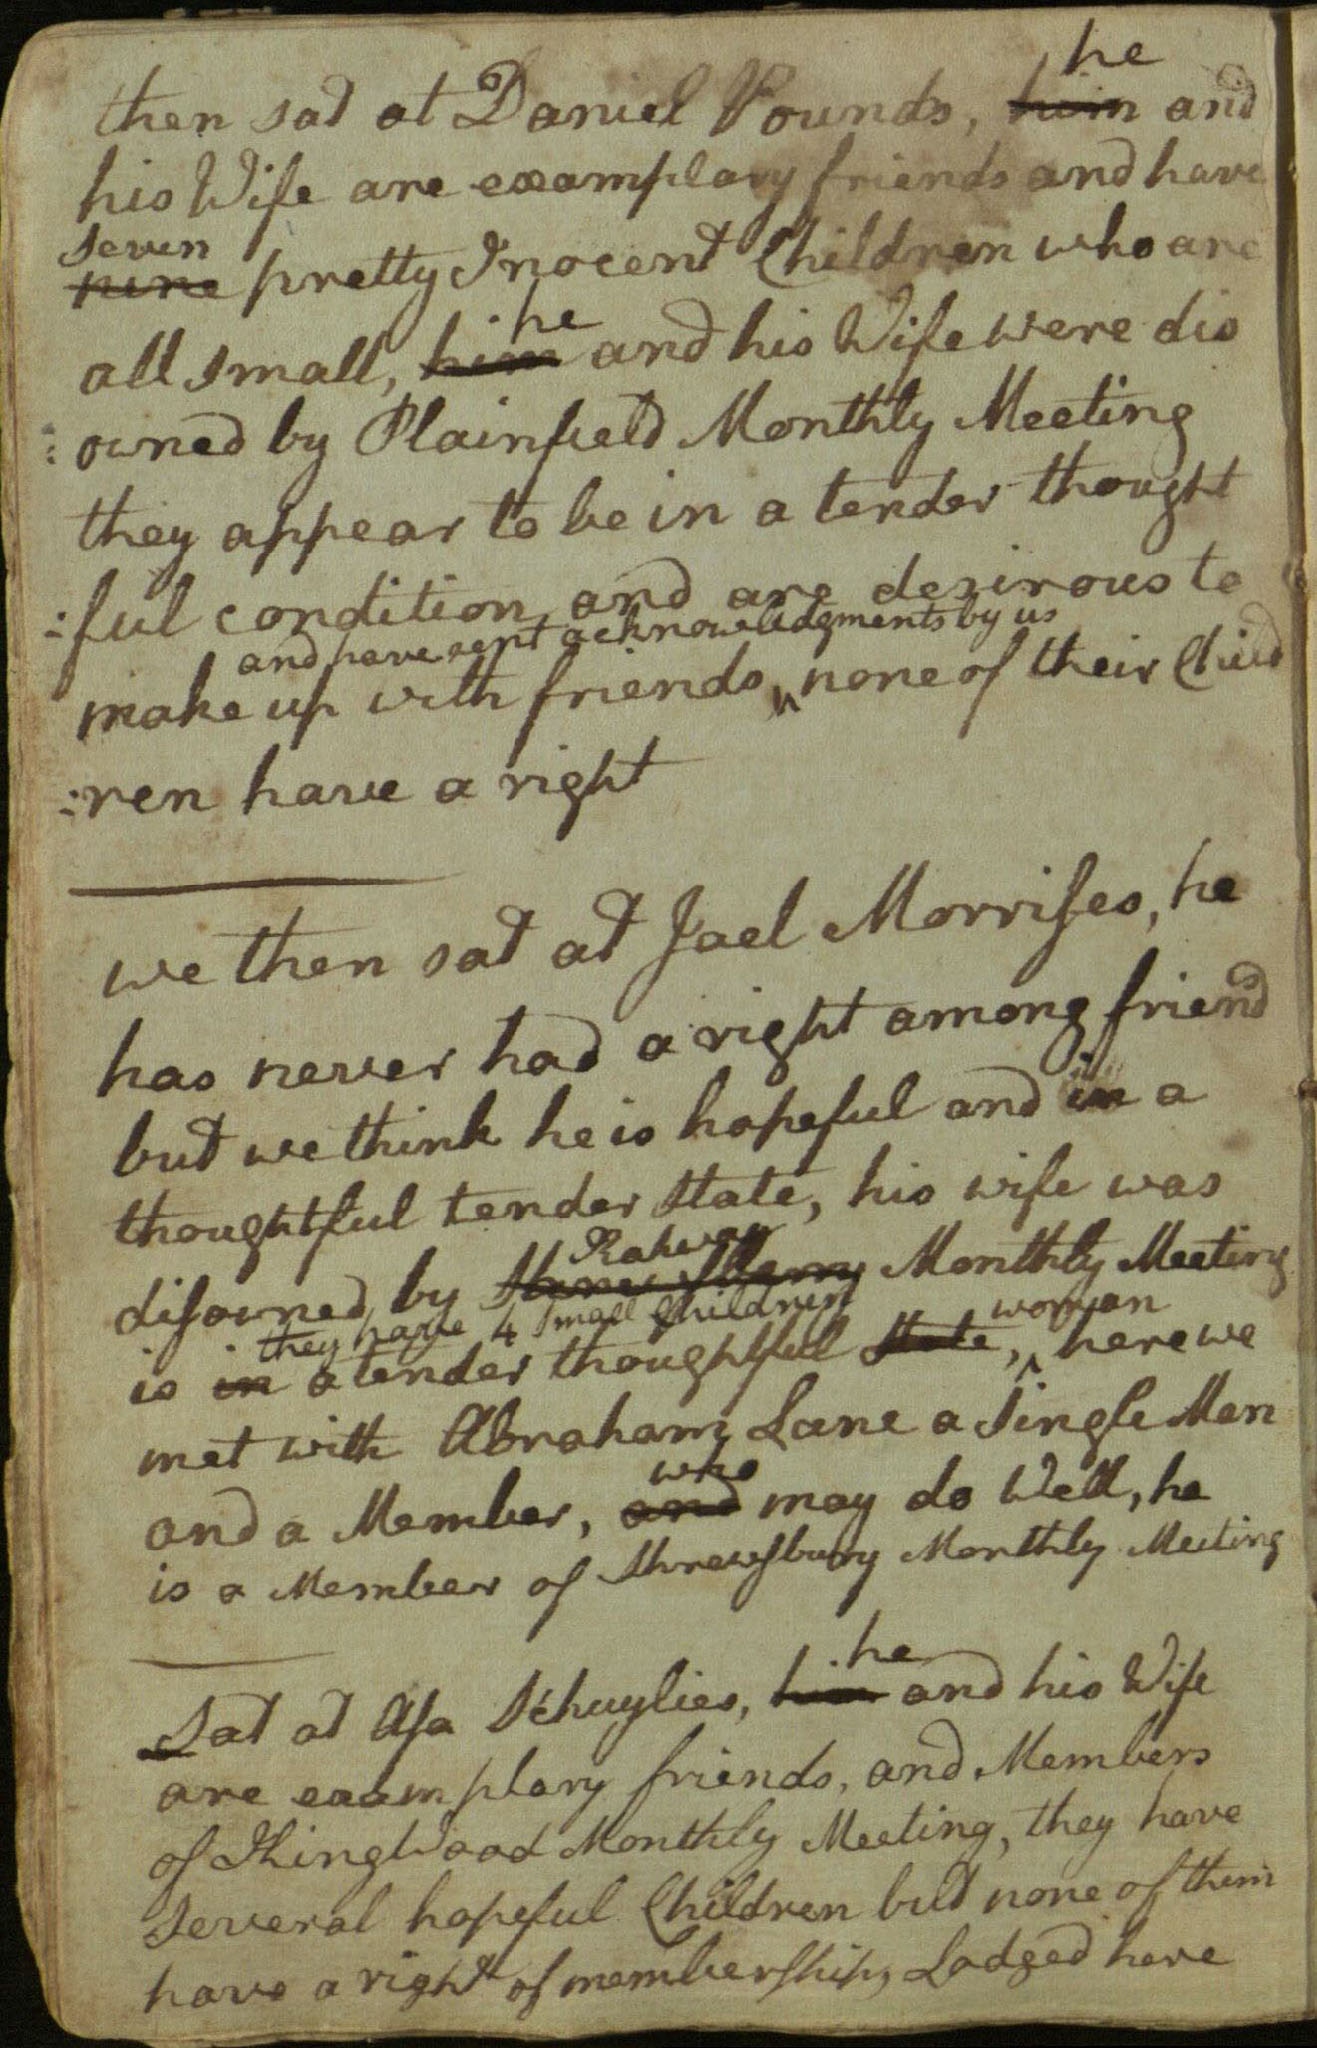 he
then sat at Daniel Pounds, him and
his Wife are examplary friends and have
seven
nine pretty Inocent Children who are
he
all small, him and his Wife were dis
: owned by Plainfield Monthly Meeting
they appear to be in a tender thought
:ful condition and are desirous to
and have sent acknowledgments by us
make up with friends ^ none of their Child
:ren have a right
we then sat at Jael Morrises, he
has never had a right among friend
but we think he is hopeful and in a
thoughtful tender state, his wife was
Rahway
disowned by Monthly Meeting
they have 4 small Children woman
is in a tender thoughtful state, ^ here we
met with Abraham Lane a Single Man
who
and a Member, and may do Well, he
is a Member of Shrewsbury Monthly Meeting
he
Sat at Asa Schuylies, him and his Wife
are examplary friends, and Members
of KingWood Monthly Meeting, they have
several hopeful Children but none of them
have a right of membership, Lodged here